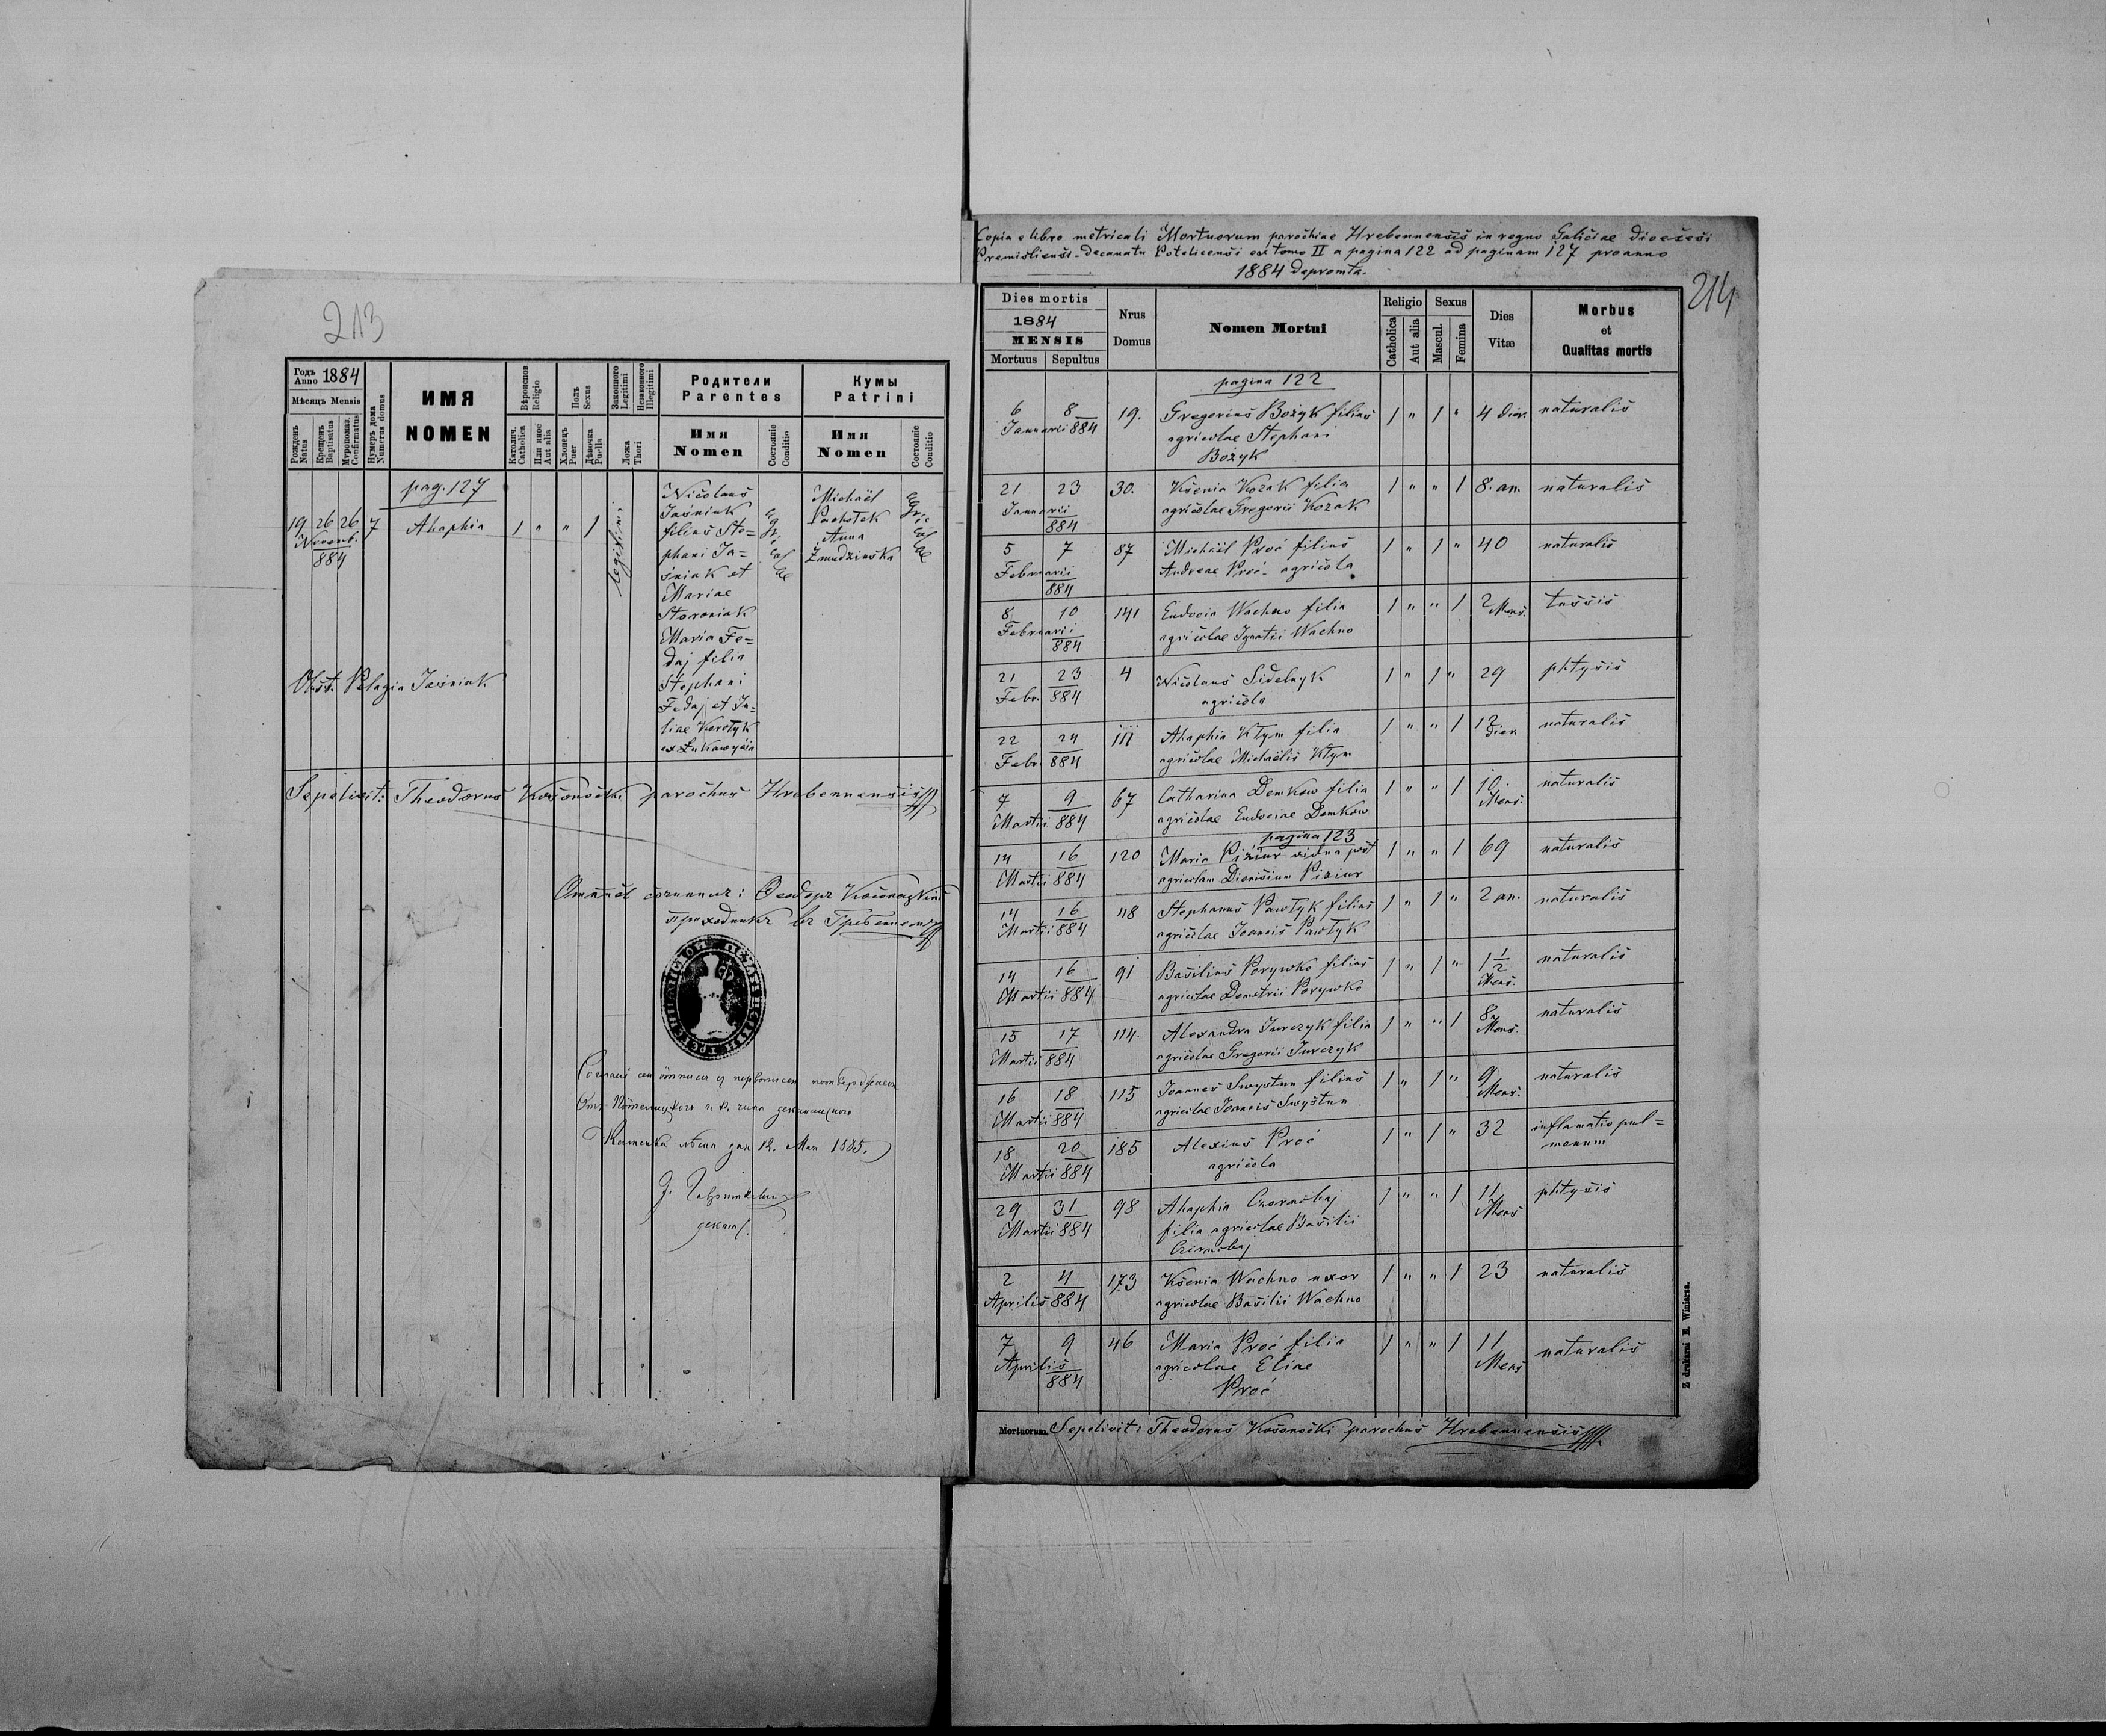 213
Годъ Anno 1884
Мѣсяцъ Mensis
Рожденъ Natus
Крещенъ Baptisatus
Мѵропомаз. Confirmatus
Нумеръ дома Numerus domus
ИМЯ
NOMEN
Вѣроисповѣд. Religio
Католич. Catholica
Или иное Aut alia
Полъ Sexus
Хлопецъ Puer
Дѣвочка Puella
Законного Legitimi
Незаконного Illegitimi
Ложа Thori
Родители
Parentes
Имя
Nomen
Состояніе Conditio
Кумы
Patrini
Имя
Nomen
Состояніе Conditio
pag. 127
19 26 26 7 Ahaphia 1 " " 1 legitimi
Novemb.
884
Nicolaus
Jaśniuk
filius Ste=
phani Ja=
śniuk et
Mariae
Storoniak
Maria Fe=
daj filia
Stephani
Fedaj et Ju=
liae Korotyk
agri
col
ae
Michaël
Pachołek
Anna
Żmudzińska
agri
col
ae
Obst. Pelagia Jaśniuk
Theodorus Kosonoćki parochus Hrebennensis
214
Copia e libro metricali Mortuorum parochiae Hrebennensis in regno Galiciae Diocesesi
Premisliensi - Decanatu Potelicensi ex tomo II a pagina 122 ad paginam 127 pro anno
1884 depromta.
Dies mortis
1884
MENSIS
Mortuus Sepultus
Nrus
Domus
Nomen Mortui
Religio
Catholica
Aut alia
Sexus
Mascul.
Femina
Dies
Vitæ
Morbus
et
Qualitas mortis
pagina 122
6 8 19. Gregorius Bożyk filius 1 " 1 " 4 dier. naturalis
Januarii 884 agricolae Stephani
Bożyk
21 23 30. Ksenia Kozak filia 1 " " 1 8. an. naturalis
Januarii agricolae Gregorii Kozak
884
5 7 87 Michaël Proć filius 1 " 1 " 40 naturalis
Februarii Andreae Proć - agricola
884
8 10 141 Eudocia Wachno filia 1 " " 1 2 Mens. tussis
Februarii agricolae Ignatii Wachno
884
21 23 4 Nicolaus Sidelnyk 1 " 1 " 29 phtysis
Febr. 884 agricola
22 24 111 Ahaphia Kłym filia 1 " " 1 12 dier. naturalis
Febr. 884 agricolae Michaëlis Kłym
7 9 67 Catharina Demkow filia 1 " " 1 10. Mens. naturalis
Martii 884 agricolae Eudociae Demkow
pagina 123
14 16 120 Maria Piziur vidua post 1 " " 1 69 naturalis
Martii 884 agricolam Dionisium Piziur
14 16 48 Stephanus Pawłyk filius 1 " 1 " 2 an. naturalis
Martii 884 agricolae Joannis Pawłyk
14 16 91 Basilius Porywko filius 1 " 1 " 1 1/2 Mens. naturalis
Martii 884 agricolae Demetrii Porywko
15 17 114. Alexandra Jurczyk filia 1 " " 1 8 Mens. naturalis
Martii 884 agricolae Gregorii Jurczyk
16 18 115 Joannes Swystun filius 1 " 1 " 9 Mens. naturalis
Martii 884 agricolae Joannis Swystun
18 20 185 Alexius Proć 1 " 1 " 32 inflamatio pul=
Martii 884 agricola monum
29 31 98 Ahaphia Czornobaj 1 " " 1 11 Mens phtysis
Martii 884 filia agricolae Basilii
Czornobaj
2 4 173 Ksenia Wachno uxor 1 " " 1 23 naturalis
Aprilis 884 agricolae Basilii Wachno
7 9 46 Maria Proć filia 1 " " 1 11 Mens naturalis
Aprilis agricolae Eliae
884 Proć
Mortuorum. Sepelivit: Theodorus Kosonoćki parochus Hrebennensis
Z drukarni E. Winiarza.